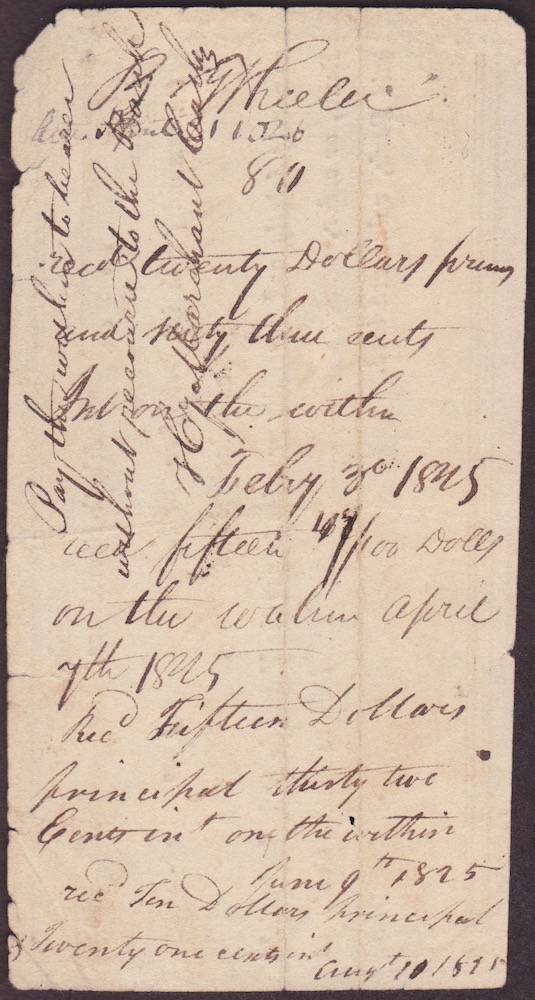 Wheeler
80
recd twenty Dollars prin
and sixty three cents
Int on the within
Feby 3d 1825
recd fifteen 47/100 Dolls
on the within April
7th 1825
Recd Fifteen Dollars
principal thirty two
Cents int on the within
June 9th 1825
recd Ten Dollars principal
Twenty one cents int
Augt 10 1825
Pay the within to bearer
without recourse to the Bank
H Marchant Cash